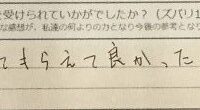 を受けられていかがでしたか？（ズバリ1
な感想が、私達の何よりの力となり今後の参考とな
てもらえて良かった